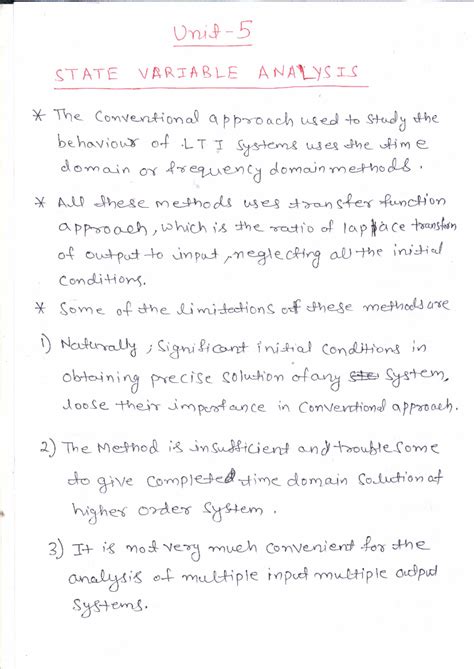 Unit-5
STATE VARIABLE ANALYSIS
* The Conventional approach used to study the
behaviour of LTI Systems uses the time
domain or frequency domain methods.
* All these methods uses transfer function
approach, which is the ratio of laplace transform
of output to input, neglecting all the initial
Conditions.
* Some of the limitations of these methods are
1) Naturally, Significant initial Conditions in
obtaining precise solution of any System,
loose their importance in Conventional approach.
2) The Method is insufficient and troublesome
to give completed time domain Solution of
higher order System.
3) It is not very much convenient for the
analysis of multiple input multiple output
Systems.